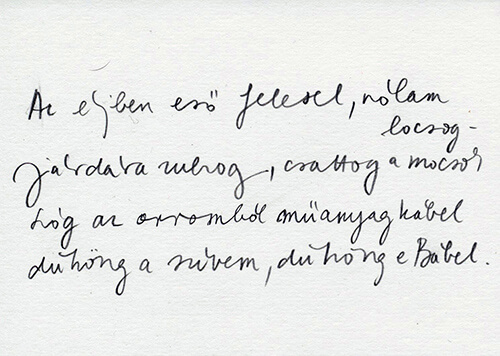 Az éjben eső felesel, rólam
locsog-
járdára zuhog, csattog a mocsok
Lóg az orromból műanyagkábel
dühöng a szívem, dühöng e Bábel.